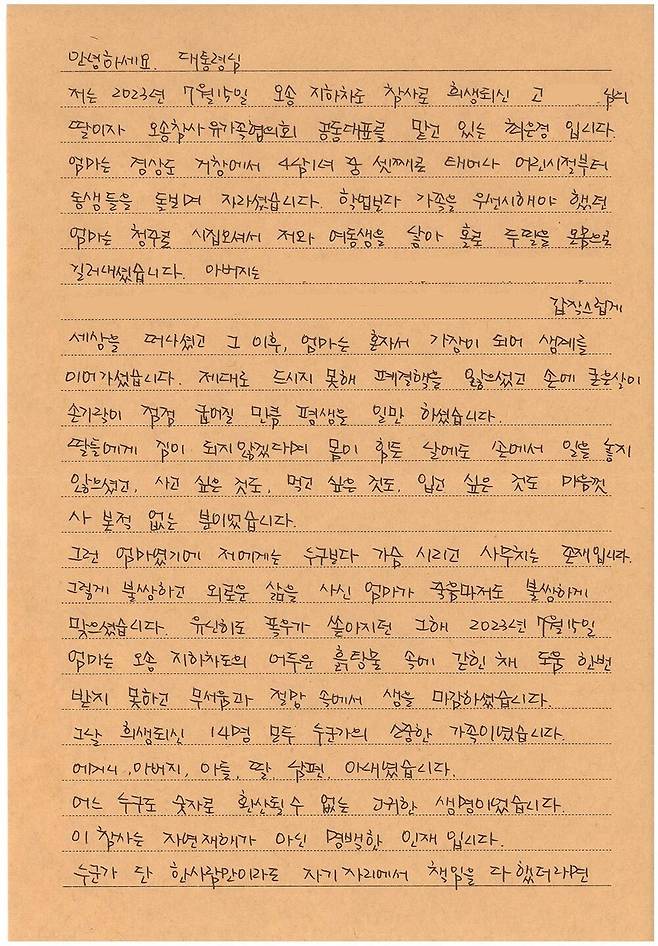 안녕하세요. 대통령님
저는 2023년 7월15일 오송 지하차도 참사로 희생되신 고 님의
딸이자 오송참사 유가족협의회 공동대표를 맡고 있는 최은경 입니다.
엄마는 경상도 거창에서 4남1녀 중 셋째로 태어나 어린시절부터
동생들을 돌보며 자라셨습니다. 학업보다 가족을 우선시해야 했던
엄마는 청주로 시집오셔서 저와 여동생을 낳아 홀로 두딸을 온몸으로
길러내셨습니다. 아버지는
갑작스럽게
세상을 떠나셨고 그 이후, 엄마는 혼자서 가장이 되어 생계를
이어가셨습니다. 제대로 드시지 못해 폐결핵을 앓으셨고 손에 굳은살이
손가락이 점점 굽어질 만큼 평생을 일만 하셨습니다.
딸들에게 짐이 되지않겠다며 몸이 힘든 날에도 손에서 일을 놓지
않으셨고, 사고 싶은 것도, 먹고 싶은 것도, 입고 싶은 것도 마음껏
사 본적 없는 분이었습니다.
그런 엄마였기에 저에게는 누구보다 가슴 시리고 사무치는 존재입니다.
그렇게 불쌍하고 외로운 삶을 사신 엄마가 죽음마저도 불쌍하게
맞으셨습니다. 유난히도 폭우가 쏟아지던 그해 2023년 7월15일
엄마는 오송 지하차도의 어두운 흙탕물 속에 갇힌 채 도움 한번
받지 못하고 무서움과 절망 속에서 생을 마감하셨습니다.
그날 희생되신 14명 모두 누군가의 소중한 가족이였습니다.
어머니, 아버지, 아들, 딸, 남편, 아내였습니다.
어느 누구도 숫자로 환산될수 없는 고귀한 생명이었습니다.
이 참사는 자연재해가 아닌 명백한 인재 입니다.
누군가 단 한사람만이라도 자기자리에서 책임을 다 했더라면